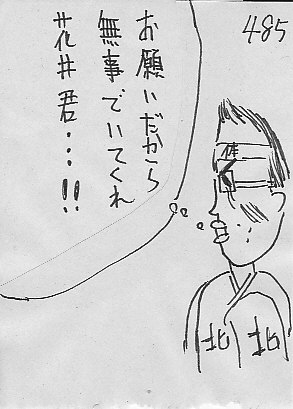 485
お願いだから
無事でいてくれ
花井君・・・!!
北 北